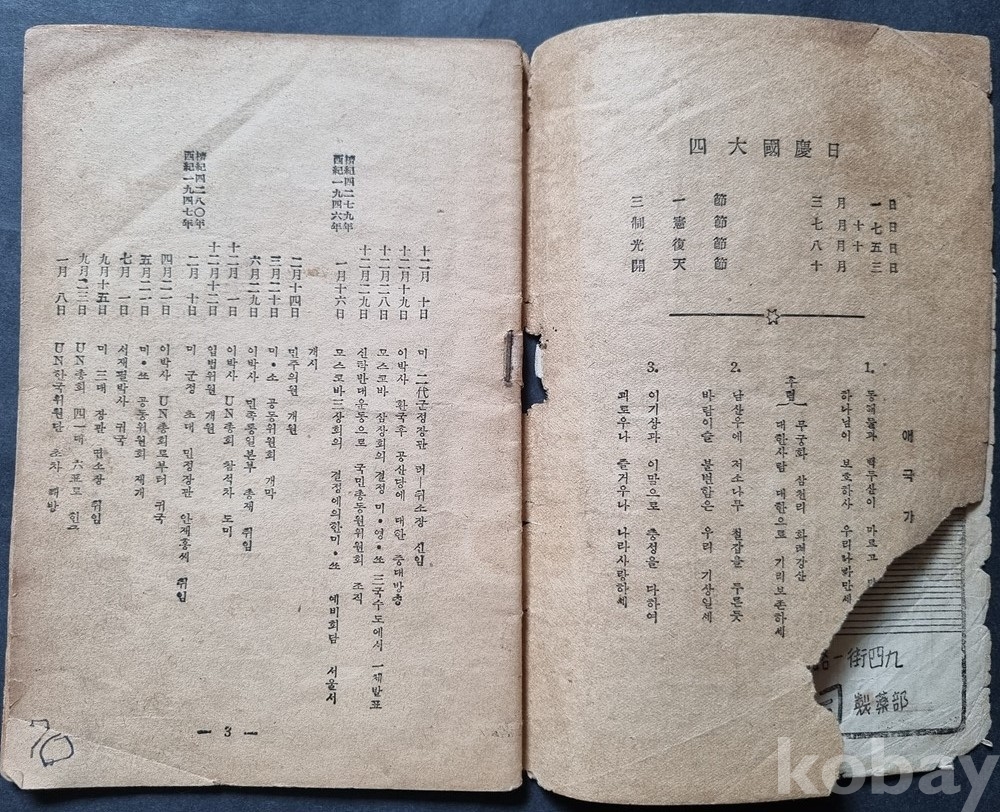 四大國慶日
三一節 三月 一日
制憲節 七月十七日
光復節 八月十五日
開天節 十月 三日
애국가
1. 동해물과 백두산이 마르고
하나님이 보호하사 우리나라만세
후렴 무궁화 삼천리 화려강산
대한사람 대한으로 기리보존하세
2. 남산우에 저소나무 철갑을 두른듯
바람이슬 불변함은 우리 기상일세
3. 이기상과 이맘으로 충성을 다하여
괴로우나 즐거우나 나라사랑하세
一街四九
製藥部
十二月 十日 미 二代군정장관 머—취소장 신임
十二月十九日 이박사 환국후 공산당에 대한 중대방송
十二月二八日 모스코바 삼상회의 결정 미·영·쏘 三국수도에서 一제발표
十二月二九日 신탁반대운동으로 국민총동원위원회 조직
檀紀四二七九年
西紀一九四六年
一月十六日 모스코바三상회의 결정에의한미·쏘 예비회담 서울서
개시
二月十四日 민주의원 개원
三月二十日 미·소 공동위원회 개막
六月二九日 이박사 민족통일본부 총재 취임
十二月 一日 이박사 UN총회 참석차 도미
十二月十二日 입법위원 개원
檀紀四二八〇年
西紀一九四七年
二月 十日 미 군정 초대 민정장관 안재홍씨 취임
四月二一日 이박사 UN총회로부터 귀국
五月二一日 미·쏘 공동위원회 재개
七月 一日 서재필박사 귀국
九月十五日 미 三대 장관 띈소장 취임
九月二三日 UN총회 四一대 六표로 한국
一月 八日 UN한국위원단 초차 래방
— 3 —
70
kobay